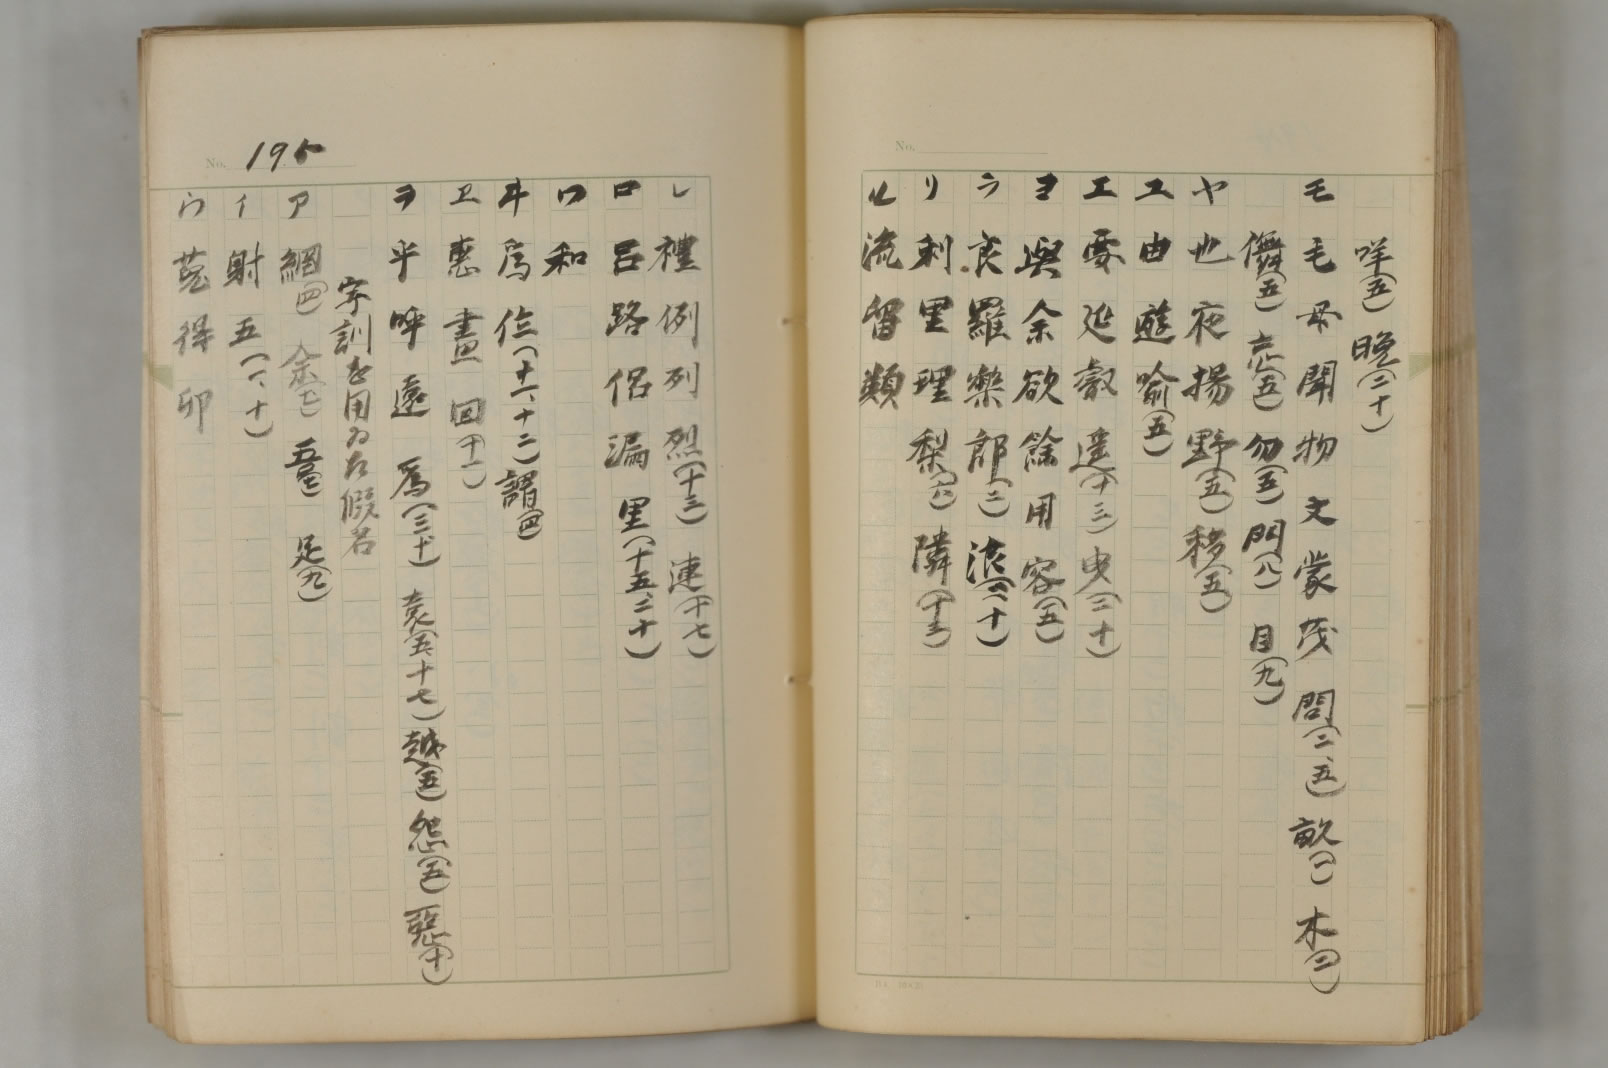 咩(五) 晩(二十)
モ 毛 母 聞 物 文 蒙 茂 問(二、五) 畝(一) 木(二)
儛(五) 忘(五) 勿(五) 門(八) 目(九)
ヤ 也 夜 揚 野(五) 移(五)
ユ 由 遊 喩(五)
エ 要 延 叡 遥(十三) 曳(二十)
ヨ 與 余 欲 餘 用 容(五)
ラ 良 羅 樂 郎(二) 浪(六、十)
リ 利 里 理 梨(六) 隣(十三)
ル 流 留 類
レ 禮 例 列 烈(十三) 連(十七)
ロ 呂 路 侶 漏 里(十五、二十)
ワ 和
ヰ 爲 位(十一、十二) 謂(四)
ヱ 惠 畫 回(十一)
ヲ 乎 呼 遠 烏(三、十) 袁(五、十七) 越(五) 怨(五) 惡(十)
字訓を用ゐた假名
ア 網(四) 余(七) 吾(七) 足(九)
イ 射 五(一、十)
ウ 菟 得 卯
No. 195
No.